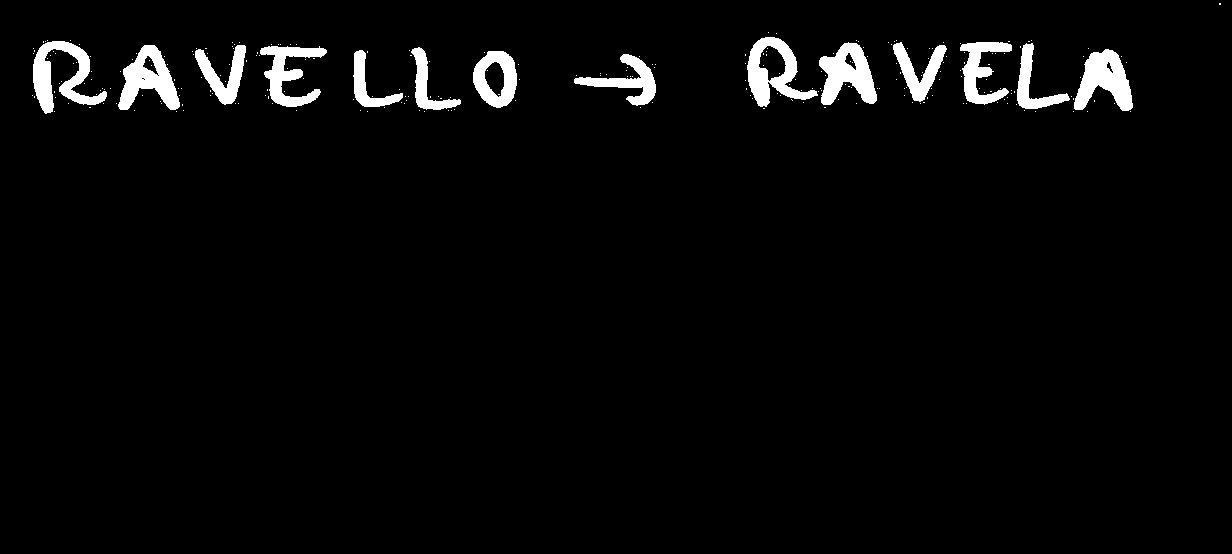 RAVELLO → RAVELA